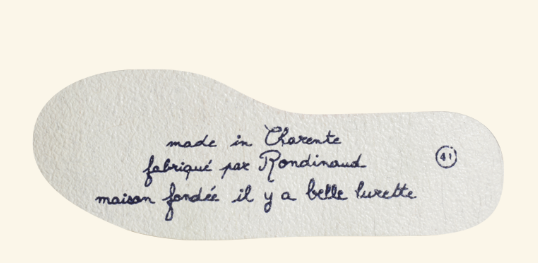 made in Charente
fabriqué par Rondinaud
maison fondée il y a belle lurette
41